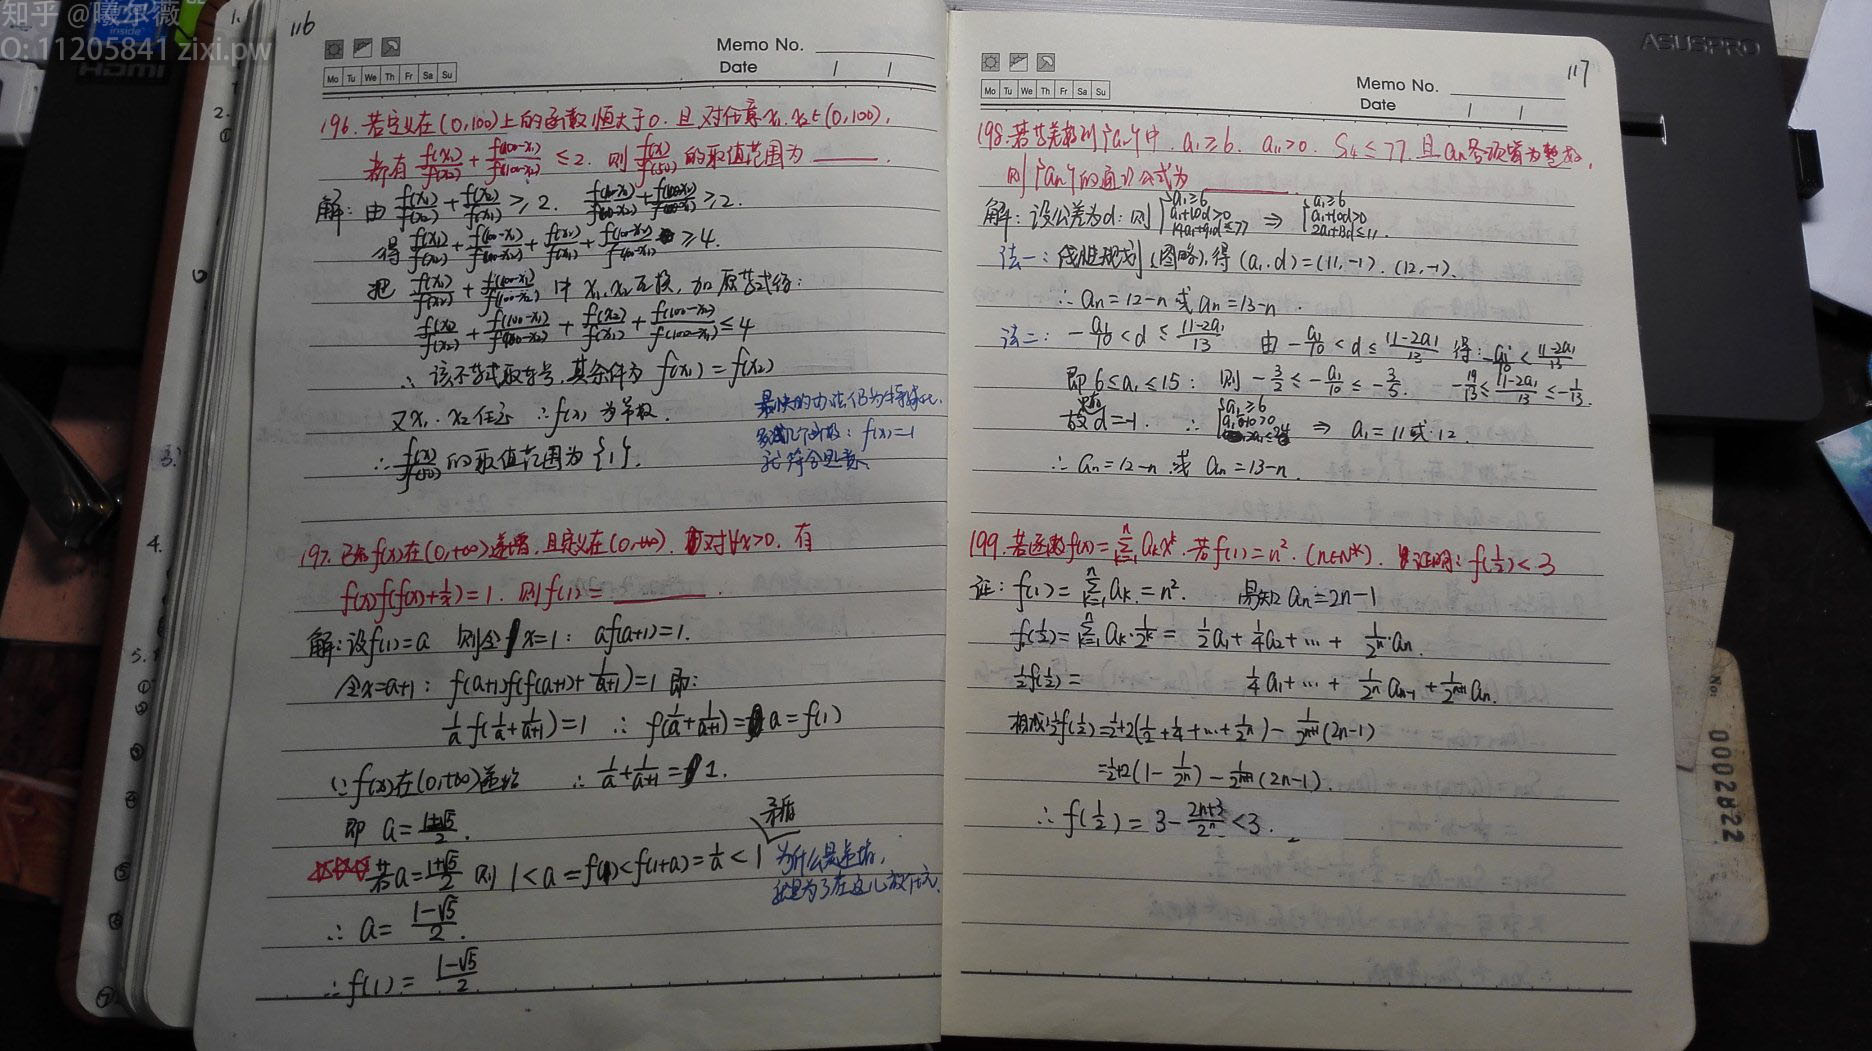 知乎 @曦尔薇
Q: 11205841 zixi.pw
inside
HDMI
ASUSPRO
116
Memo No.
Date / /
Mo Tu We Th Fr Sa Su
196. 若定义在(0,100)上的函数恒大于0. 且对任意x₁, x₂∈(0,100),
都有 f(x₁)/f(x₂) + f(100-x₁)/f(100-x₂) ≤ 2. 则 f(x)/f(50) 的取值范围为 ______.
解: 由 f(x₁)/f(x₂) + f(x₂)/f(x₁) ≥ 2.
得 f(x₁)/f(x₂) + f(100-x₁)/f(100-x₂) + f(x₂)/f(x₁) + f(100-x₂)/f(100-x₁) ≥ 4.
把 f(x₁)/f(x₂) + f(100-x₁)/f(100-x₂) 中 x₁, x₂ 互换, 加原等式得:
f(x₁)/f(x₂) + f(100-x₁)/f(100-x₂) + f(x₂)/f(x₁) + f(100-x₂)/f(100-x₁) ≤ 4
∴ 该不等式取等号, 其条件为 f(x₁) = f(x₂)
又x₁, x₂任意 ∴ f(x) 为常数.
∴ f(x)/f(50) 的取值范围为 {1}.
最快的办法仍为特殊化.
f(x)=1
就符合题意.
197. 已知f(x)在(0,+∞)递增, 且定义在(0,+∞). 对∀x>0, 有
f(x)f(f(x)+1/x)=1. 则f(1)= ______.
解: 设f(1)=a 则令x=1: af(a+1)=1.
令x=a+1: f(a+1)f(f(a+1)+1/(a+1))=1 即:
1/a f(1/a+1/(a+1))=1 ∴ f(1/a+1/(a+1))=a=f(1)
∵ f(x)在(0,+∞)递增 ∴ 1/a+1/(a+1)=1.
即 a=(1±√5)/2.
若a=(1+√5)/2 则 1<a=f(1)<f(1+a)=1/a<1
矛盾
为什么是递增,
就是为了在这儿放1次.
∴ a=(1-√5)/2.
∴ f(1)=(1-√5)/2.
117
Memo No.
Date / /
Mo Tu We Th Fr Sa Su
198. 若等差数列{an}中, a₁≥6. a₁₁>0. S₁₄≤77. 且an各项皆为整数,
则{an}的通项公式为 ______.
解: 设公差为d: 则 {a₁≥6 a₁+10d>0 14a₁+91d≤77 ⇒ {a₁≥6 a₁+10d>0 2a₁+13d≤11.
法一: 线性规划 (图略), 得 (a₁, d)=(11,-1). (12,-1).
∴ an=12-n 或 an=13-n.
法二: -a₁/10<d≤(11-2a₁)/13 由 -a₁/10<d≤(11-2a₁)/13 得: -a₁/10<(11-2a₁)/13
即 6≤a₁≤15: 则 -3/2≤-a₁/10≤-3/5. -19/13≤(11-2a₁)/13≤-1/13.
故d=-1. ∴ {a₁≥6 a₁-10>0 ⇒ a₁=11或12.
∴ an=12-n 或 an=13-n.
199. 若函数f(x)=∑ₖ₌₁ⁿ aₖxᵏ. 若f(1)=n². (n∈N*). 证明: f(1/2)<3
证: f(1)=∑ₖ₌₁ⁿ aₖ=n². 易知 an=2n-1
f(1/2)=∑ₖ₌₁ⁿ aₖ·1/2ᵏ= 1/2a₁+1/4a₂+…+ 1/2ⁿ·an.
1/2f(1/2)= 1/4a₁+…+ 1/2ⁿ aₙ₋₁+1/2ⁿ⁺¹ an.
相减: 1/2f(1/2)=1/2+2(1/2+1/4+…+1/2ⁿ)-1/2ⁿ⁺¹(2n-1)
=1/2+2(1-1/2ⁿ)-1/2ⁿ⁺¹(2n-1).
∴ f(1/2)=3-(2n+3)/2ⁿ<3.
No:
0002822